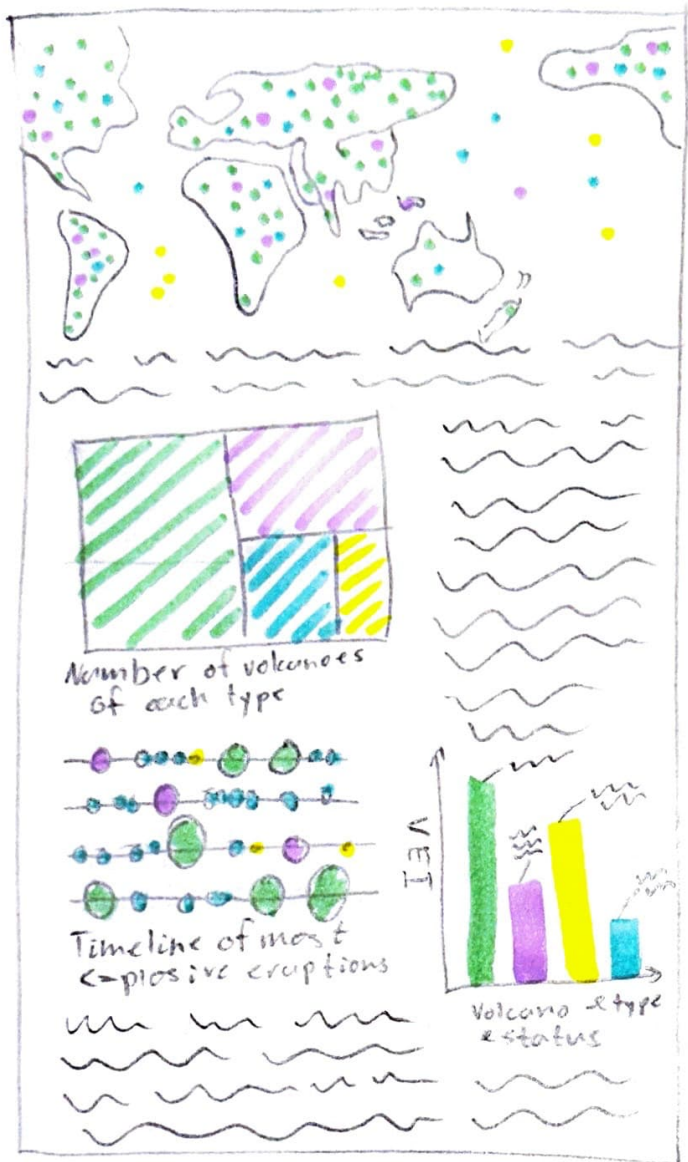 Number of volcanoes
of each type
Timeline of most
explosive eruptions
VEI
Volcano & type
& status